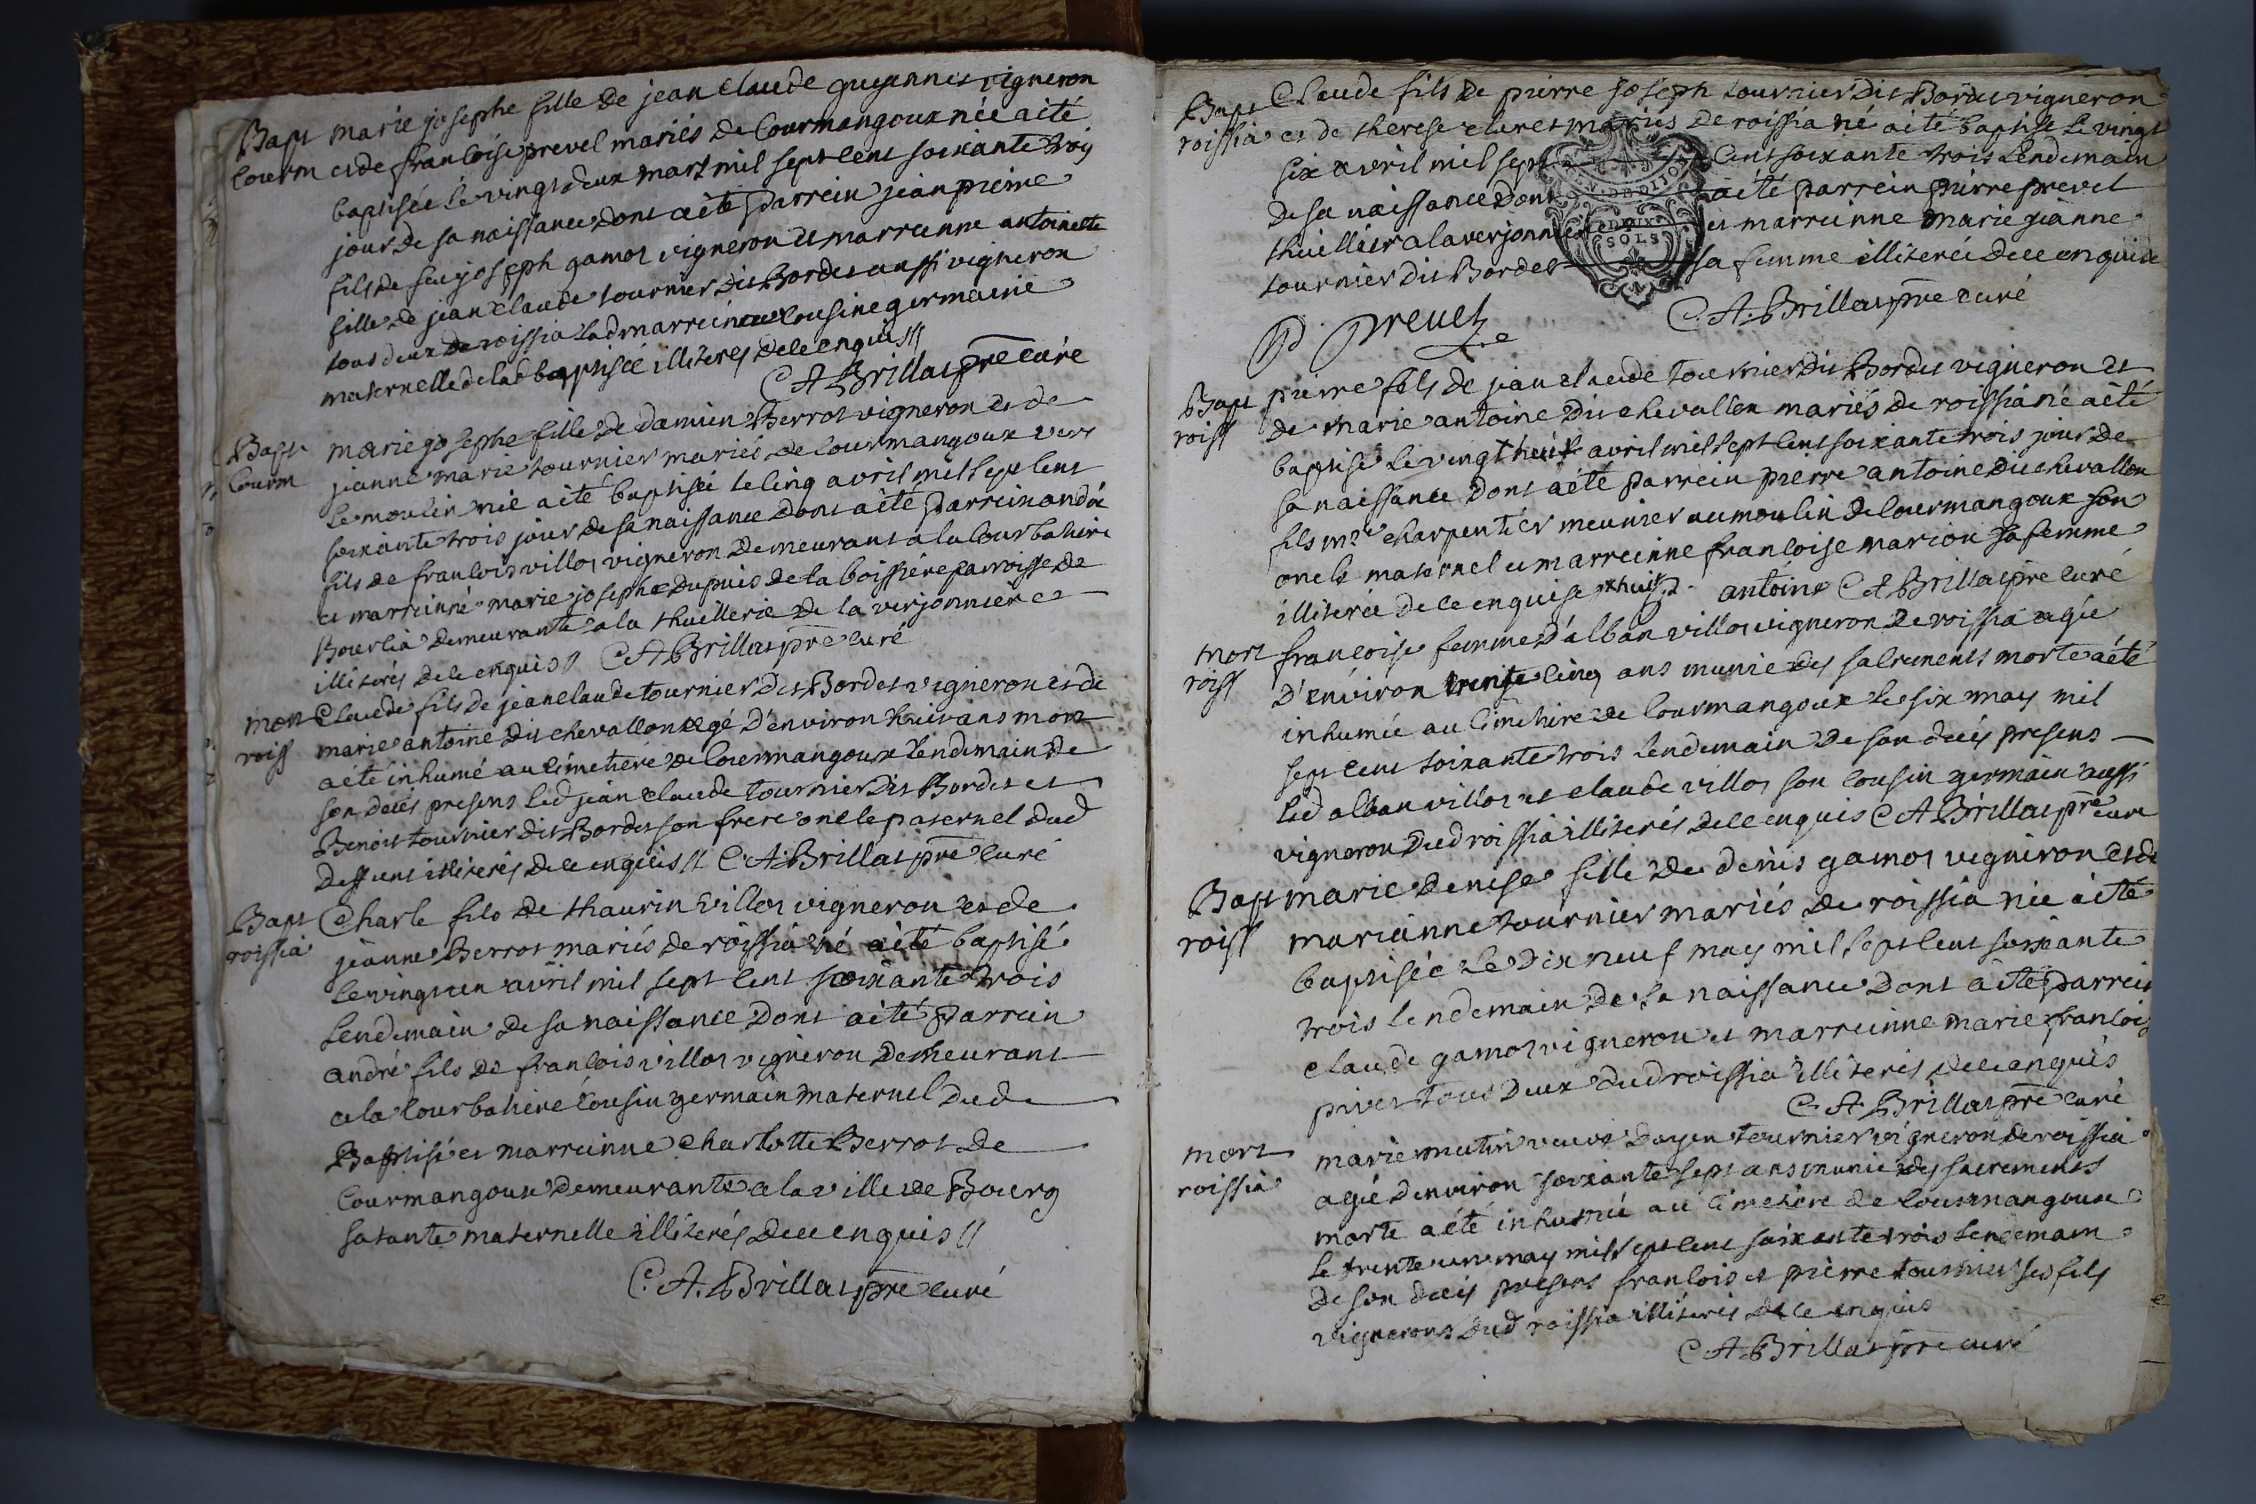 Bapt marie josephe fille de jean claude guyennet vigneron
Courm et de francoise prevel mariés de Courmangoux née a été
baptisée le vingt deux mars mil sept cent soixante trois
jour de sa naissance dont a été parrein jean pierre
fils de feu joseph gamos vigneron et marreinne antoinette
fille de jean claude tournier dit Bordet aussi vigneron
tous deux de roissia lad marreinne cousine germaine
maternelle de lad baptisée illiterés de ce enquis //
C A Brillat pre curé
Bapt marie josephe fille de damien Berrot vigneron et de
Courm jeanne marie tournier mariés de Courmangoux vers
le moulin née a été baptisée le cinq avril mil sept cent
soixante trois jour de sa naissance dont a été parrein andré
fils de francois villot vigneron demeurant a la Courbatiere
et marreinne marie josephe Dupuis de la boissière parroisse de
Bourcia demeurante a la thuillerie de la verjonniere
illiterés de ce enquis // C A Brillat pre curé
mort Claude fils de jean claude tournier dit Bordet vigneron et de
roiss marie antoine dit chevallon agé d'environ huit ans mort
a été inhumé au cimetiere de Courmangoux lendemain de
son decés presens led jean claude tournier dit Bordet et
Benoit tournier dit Bordet son frere oncle paternel dud
deffunt illiterés de ce enquis // C A Brillat pre curé
Bapt Charle fils de thaurin villot vigneron et de
roissia jeanne Berrot mariés de roissia né a été baptisé
le vingt un avril mil sept cent soixante trois
lendemain de sa naissance dont a été parrein
andré fils de francois villot vigneron demeurant
a la Courbatiere cousin germain maternel dud
Baptisé et marreinne charlotte Berrot de
Courmangoux demeurante a la ville de Bourg
sa tante maternelle illiterés de ce enquis //
C. A. Brillat pre curé
Bapt Claude fils de pierre joseph tournier dit Bordet vigneron
roissia et de therese claret mariés de roissia né a été baptisé le vingt
six avril mil sept cent soixante trois lendemain
de sa naissance dont a été parrein pierre prevel
thuillier a la verjonniere et marreinne marie jeanne
tournier dit Bordet sa femme illiterée de ce enquise
DE DIJON
SOLS
P prevel C. A. Brillat pre curé
Bapt pierre fils de jean claude tournier dit Bordet vigneron et
roiss de marie antoine dit chevallon mariés de roissia né a été
baptisé le vingt huit avril mil sept cent soixante trois jour de
sa naissance dont a été parrein pierre antoine dit chevallon
fils mre charpentier meunier au moulin de Courmangoux son
oncle maternel et marreinne francoise marion sa femme
illiterée de ce enquise x huit antoine C A Brillat pre curé
mort francoise femme d'alban villot vigneron de roissia agée
roiss d'environ trente cinq ans munie des sacrements morte a été
inhumée au cimetiere de Courmangoux le six may mil
sept cent soixante trois lendemain de son decés presens
led alban villot et claude villot son cousin germain aussi
vigneron dud roissia illiterés de ce enquis C A Brillat pre curé
Bapt marie denise fille de denis gamos vigneron et de
roiss marianne tournier mariés de roissia née a été
baptisée le dix neuf may mil sept cent soixante
trois lendemain de sa naissance dont a été parrein
claude gamos vigneron et marreinne marie francoise
tous deux dud roissia illiterés de ce enquis
C. A Brillat pre curé
mort marie mutin veuve tournier vigneron de roissia
roissia agée d'environ soixante sept ans munie des sacrements
morte a été inhumée au cimetiere de Courmangoux
le trente un may mil sept cent soixante trois lendemain
de son decés presens francois et pierre tournier ses fils
vignerons dud roissia illiterés de ce enquis
C. A Brillat pre curé